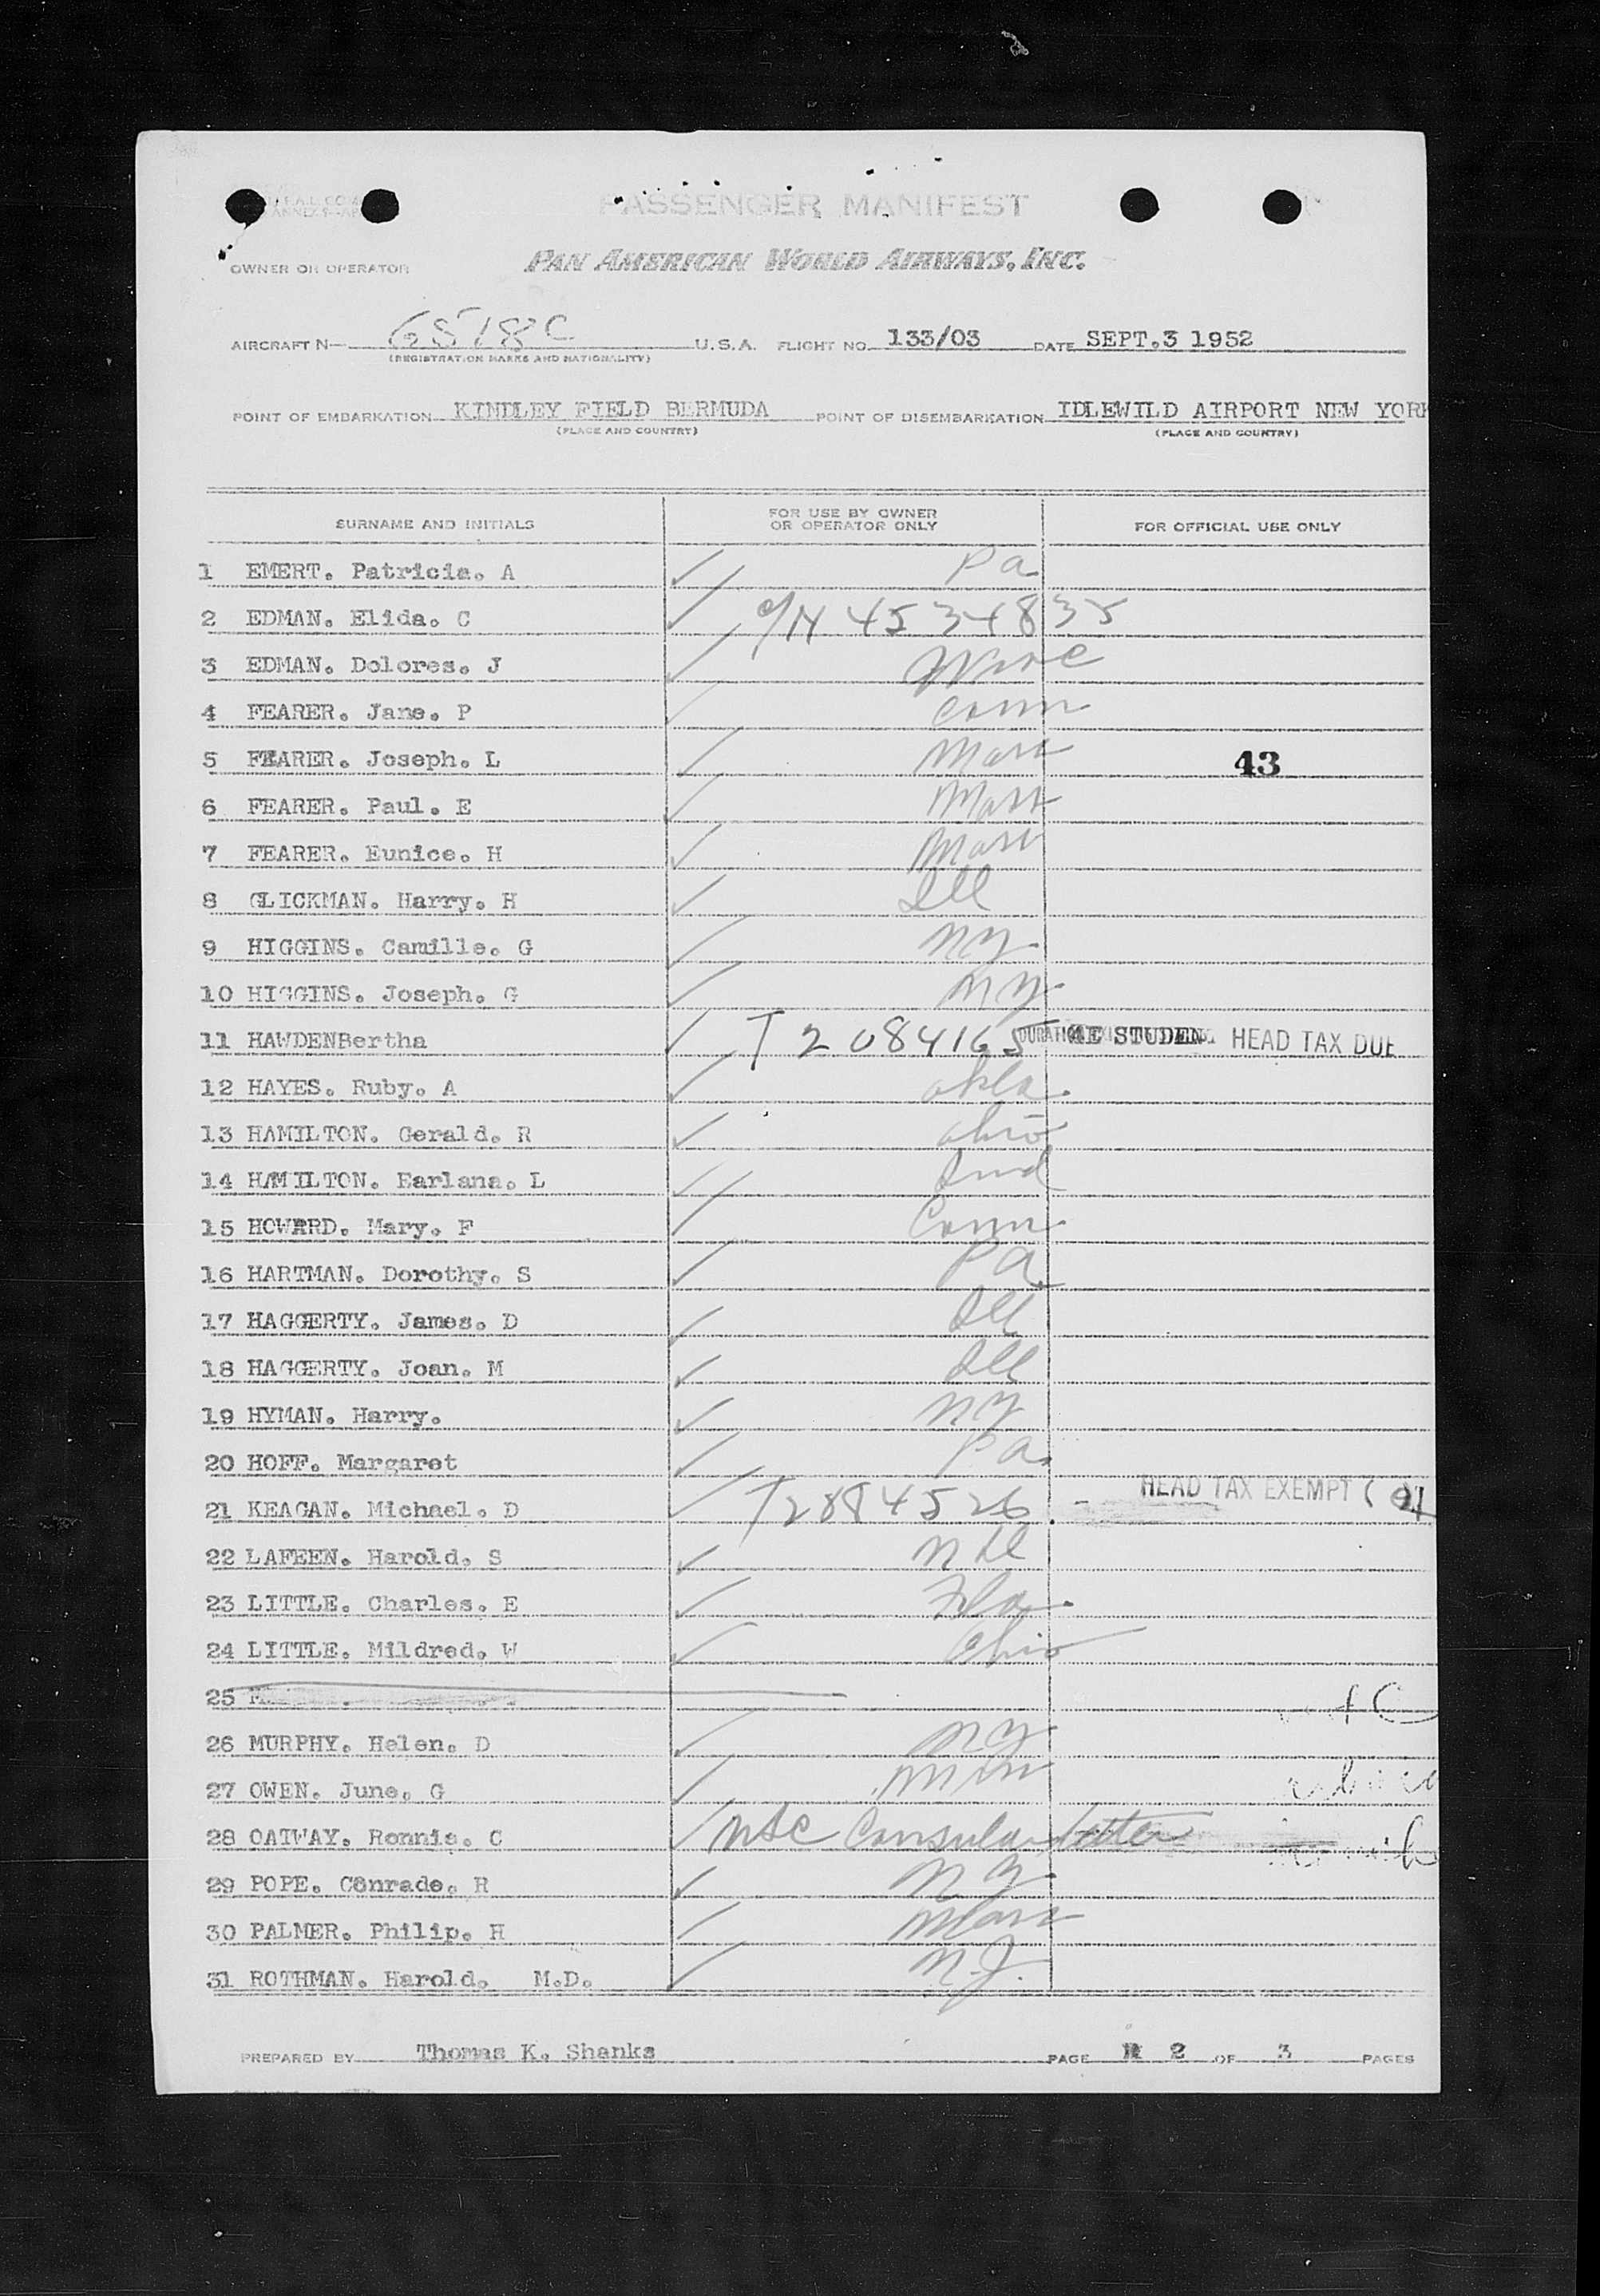 PASSENGER MANIFEST
OWNER OR OPERATOR PAN AMERICAN WORLD AIRWAYS, INC.
AIRCRAFT N— 6518C U.S.A. FLIGHT NO. 133/03 DATE SEPT.3 1952
(REGISTRATION MARKS AND NATIONALITY)
POINT OF EMBARKATION KINDLEY FIELD BERMUDA POINT OF DISEMBARKATION IDLEWILD AIRPORT NEW YORK
(PLACE AND COUNTRY) (PLACE AND COUNTRY)
SURNAME AND INITIALS FOR USE BY OWNER OR OPERATOR ONLY FOR OFFICIAL USE ONLY
1 EMERT. Patricia. A Pa
2 EDMAN. Elida. C 4534835
3 EDMAN. Dolores. J
4 FEARER. Jane. P Conn
5 FEARER. Joseph. L Mass 43
6 FEARER. Paul. E Mass
7 FEARER. Eunice. H Mass
8 GLICKMAN. Harry. H Ill
9 HIGGINS. Camille. G NY.
10 HIGGINS. Joseph. G NY.
11 HAWDENBertha T 2084165 STUDEN HEAD TAX DUE
12 HAYES. Ruby. A Okla.
13 HAMILTON. Gerald. R Ohio
14 HAMILTON. Earlana. L Ind
15 HOWARD. Mary. F Conn.
16 HARTMAN. Dorothy. S Pa
17 HAGGERTY. James. D Ill
18 HAGGERTY. Joan. M Ill
19 HYMAN. Harry. NY
20 HOFF. Margaret Pa.
21 KEAGAN. Michael. D T2884526 HEAD TAX EXEMPT
22 LAFEEN. Harold. S
23 LITTLE. Charles. E Fla.
24 LITTLE. Mildred. W Ohio
25
26 MURPHY. Helen. D NY.
27 OWEN. June. G
28 OATWAY. Ronnie. C Consular letter
29 POPE. C0nrade. R NY.
30 PALMER. Philip. H Mass
31 ROTHMAN. Harold. M.D. N.J.
PREPARED BY Thomas K. Shanks PAGE 2 OF 3 PAGES